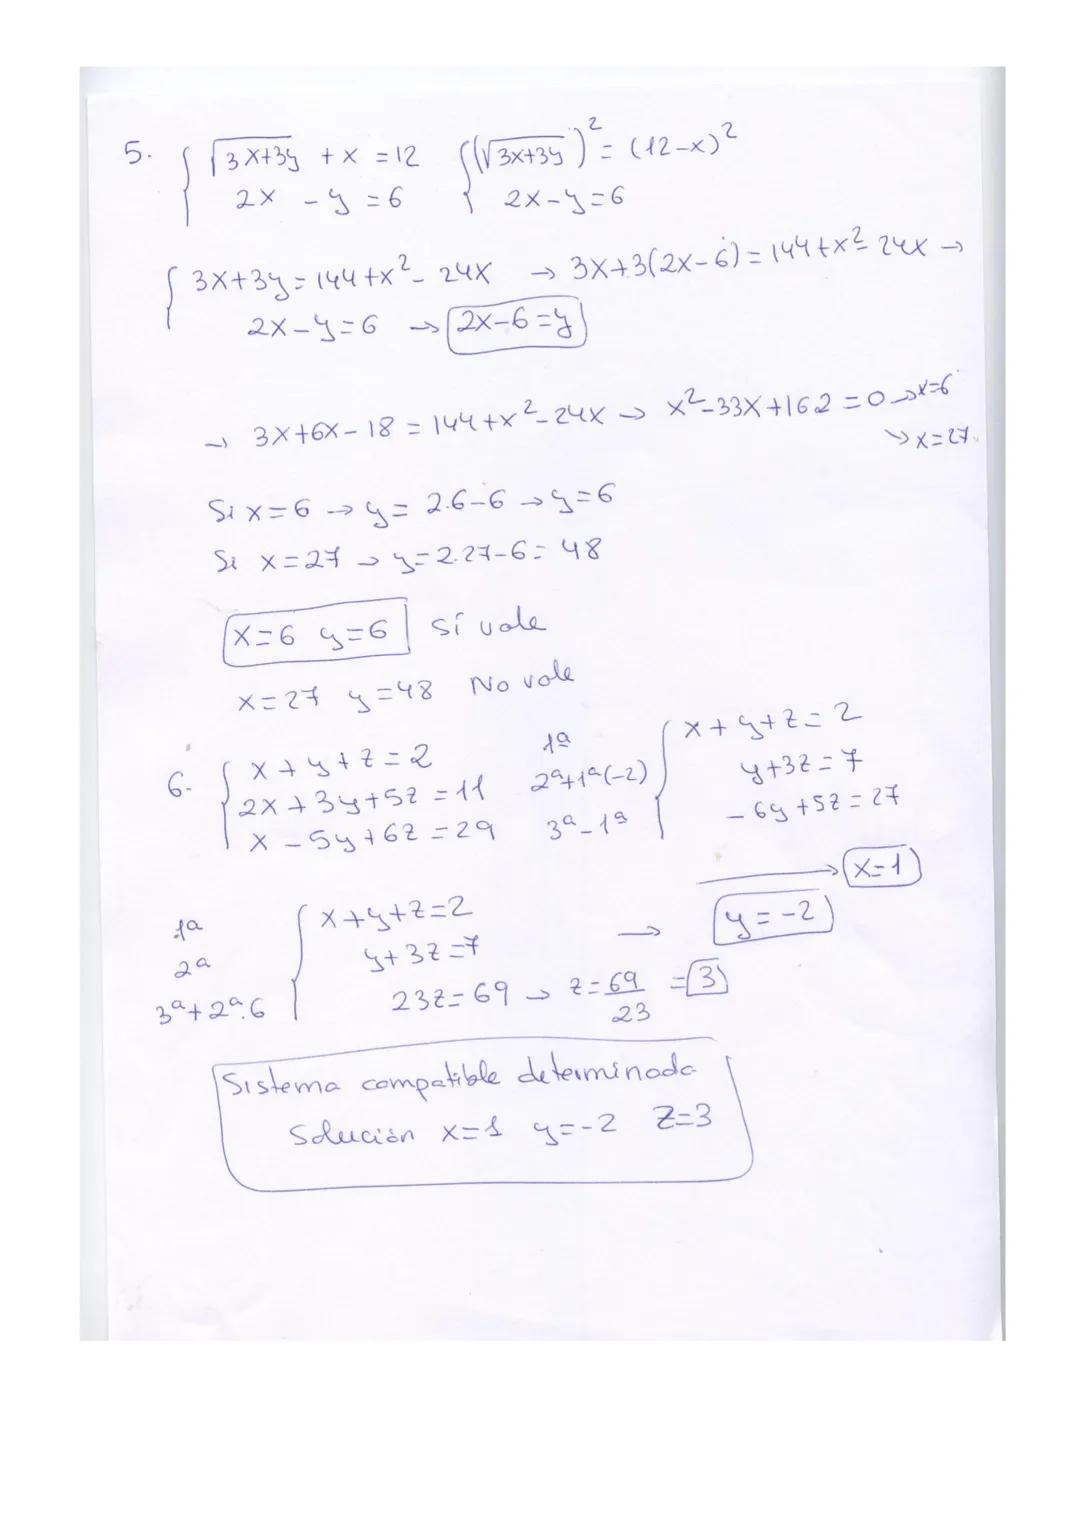 5. { √3x+3y + x = 12   { (√3x+3y)² = (12-x)²
2x - y = 6   2x-y=6
{ 3x+3y = 144+x²-24x → 3x+3(2x-6) = 144+x²-24x →
2x-y=6 → 2x-6=y
→ 3x+6x-18 = 144+x²-24x → x²-33x+162=0 → x=6
↘ x=27.
Si x=6 → y= 2.6-6 → y=6
Si x=27 → y=2.27-6= 48
x=6 y=6 Sí vale
x=27 y=48 No vale
6. { x+y+z=2   1ª   { x+y+z=2
2x+3y+5z=11   2ª+1ª(-2)   y+3z=7
x-5y+6z=29   3ª-1ª   -6y+5z=27
→ x=1
1ª { x+y+z=2 → y=-2
2ª y+3z=7
3ª+2ª.6 23z=69 → z=69/23 = 3
Sistema compatible determinado
Solución x=1 y=-2 z=3